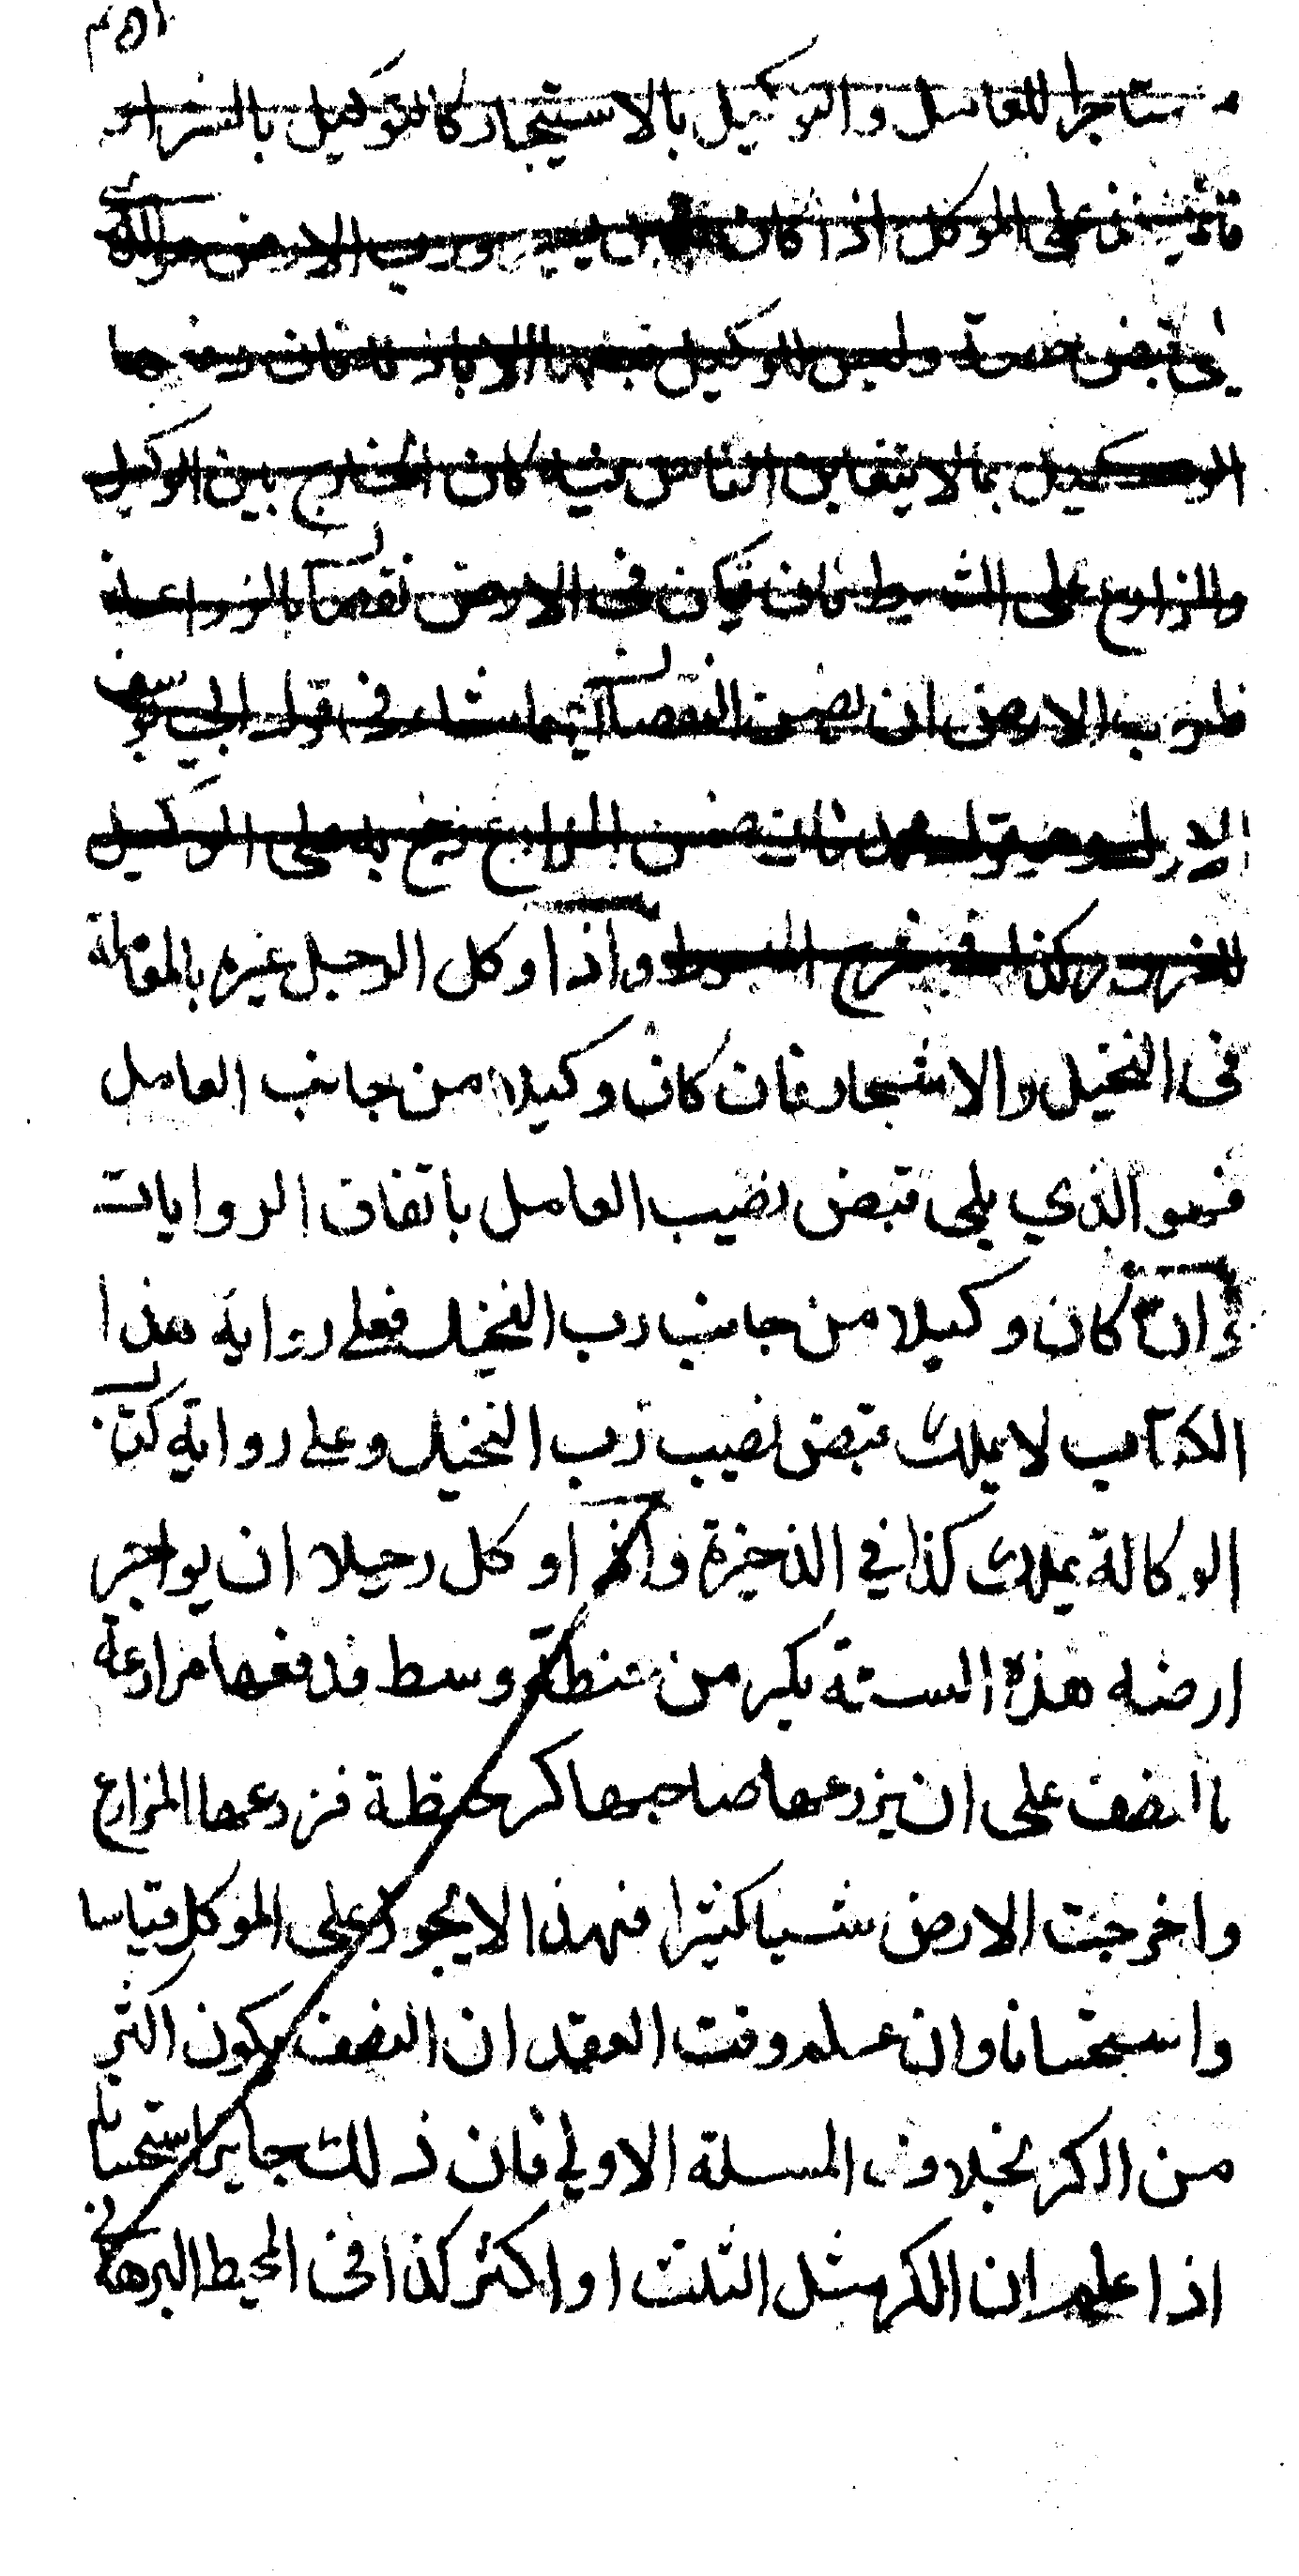 مستاجرا للعامل والتوكيل بالاستيجار كالتوكيل بالشراء
على الموكل اذا كان رب الارض هو الذى
يلى قبض حصته وليس للوكيل قبضها الا باذنه فان دفعها
الوكيل بما لا يتغابن الناس فيه كان الخارج بين الوكيل
والمزارع على الشرط فان تمكن فى الارض نقصان بالزراعة
فلرب الارض ان يضمن النقصان ايهما شاء فى قول ابي يوسف
الاول وهو قول محمد فان ضمن المزارع رجع به على الوكيل
للغرور هكذا في شرح المبسوط واذا وكل الرجل غيره بالمعاملة
فى النخيل والاشجار فان كان وكيلا من جانب العامل
فهو الذي يلى قبض نصيب العامل باتفاق الروايات
وان كان وكيلا من جانب رب النخيل فعلى رواية هذا
الكتاب لا يملك قبض نصيب رب النخيل وعلى رواية كتاب
الوكالة يملك كذا في الذخيرة واذا وكل رجلا ان يواجر
ارضه هذه السنة بكر من حنطة وسط فدفعها مزارعة
بالنصف على ان يزرعها صاحبها كر حنطة فزرعها المزارع
واخرجت الارض شيا كثيرا فهذا لا يجوز على الموكل قياسا
واستحسانا وان علم وقت العقد ان النصف يكون اكثر
من الكر بخلاف المسلة الاولي فان ذلك جايز استحسانا
اذا علم ان الكر مثل الثلث او اكثر كذا فى المحيط البرهاني